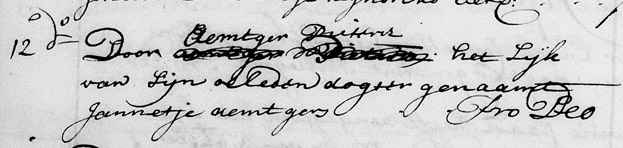 12 do Door Aemtger Pieters het Lijk
van zijn overleden dogter genaamt
Jannetje Aemtgers Pro Deo